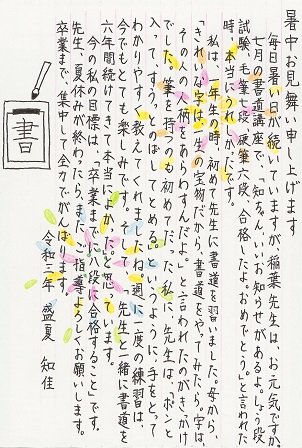 暑中お見舞い申し上げます
毎日暑い日が続いていますが、稲葉先生は、お元気ですか。
七月の書道講座で、「知ちゃん、いいお知らせがあるよ。しょう段
試験、毛筆七段、硬筆六段、合格したよ。おめでとう。」と言われた
時、本当にうれしかったです。
私は、一年生の時、初めて先生に書道を習いました。母から、
「きれいな字は一生の宝物だから、書道をやってみたら。字は
その人の人柄をあらわすんだよ。」と言われたのがきっかけ
でした。筆を持つのも初めてだった私に、先生は、「ポンと
入って、すうっとのばしてとめる。」というように、手をとって
わかりやすく教えてくれましたね。週に一度の練習は、
今でもとても楽しみです。そして、先生と一緒に書道を
六年間続けてきて本当によかったと思っています。
今の私の目標は、「卒業までに八段に合格すること」です。
先生、夏休みが終わったら、また、ご指導よろしくお願いします。
卒業まで、集中して全力でがんばります。
令和三年 盛夏 知佳
書